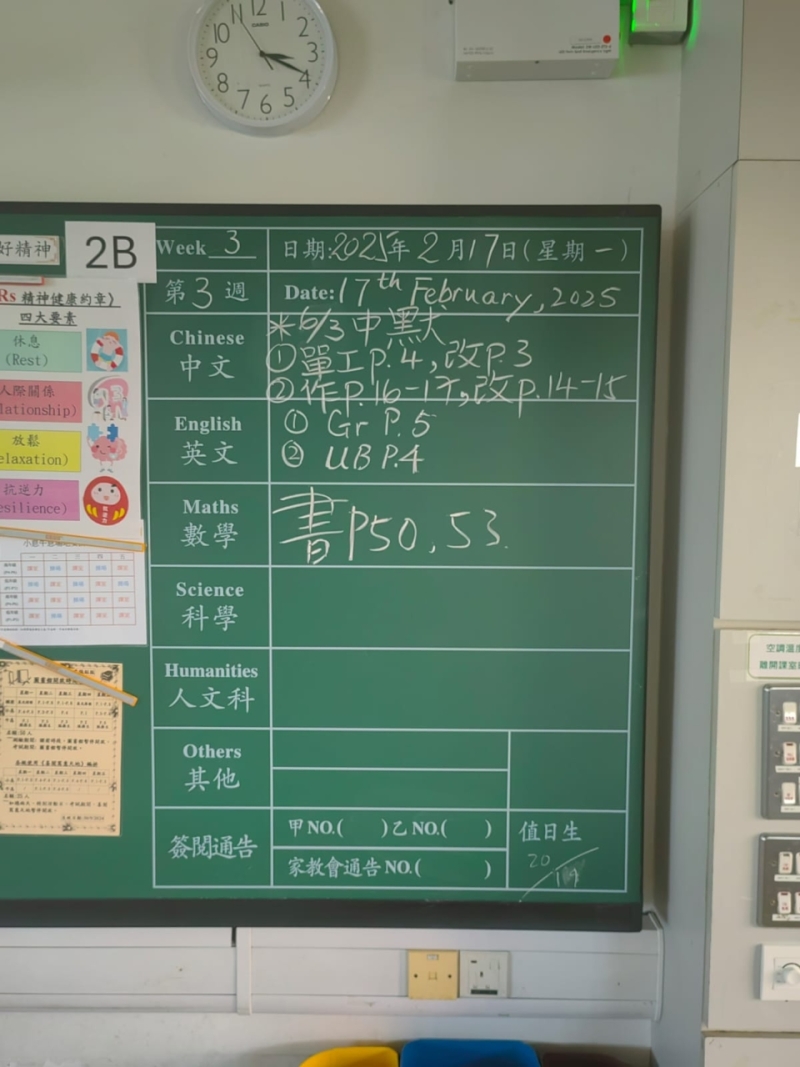 12 1 2 3 4 5 6 7 8 9 10 11
CASIO
好精神
2B
Week 3
日期:2025年2月17日(星期一)
第3週
Date: 17th February, 2025
Rs 精神健康約章)
四大要素
休息
(Rest)
人際關係
lationship)
放鬆
elaxation)
抗逆力
esilience)
Chinese
中文
*6/3 中默
①單工P.4,改P.3
②作P.16-17,改P.14-15
English
英文
① Gr P.5
② UB P.4
Maths
數學
書P50,53.
Science
科學
Humanities
人文科
Others
其他
簽閱通告
甲NO.( )乙NO.( )
家教會通告NO.( )
值日生
20
19
空調溫度
離開課室